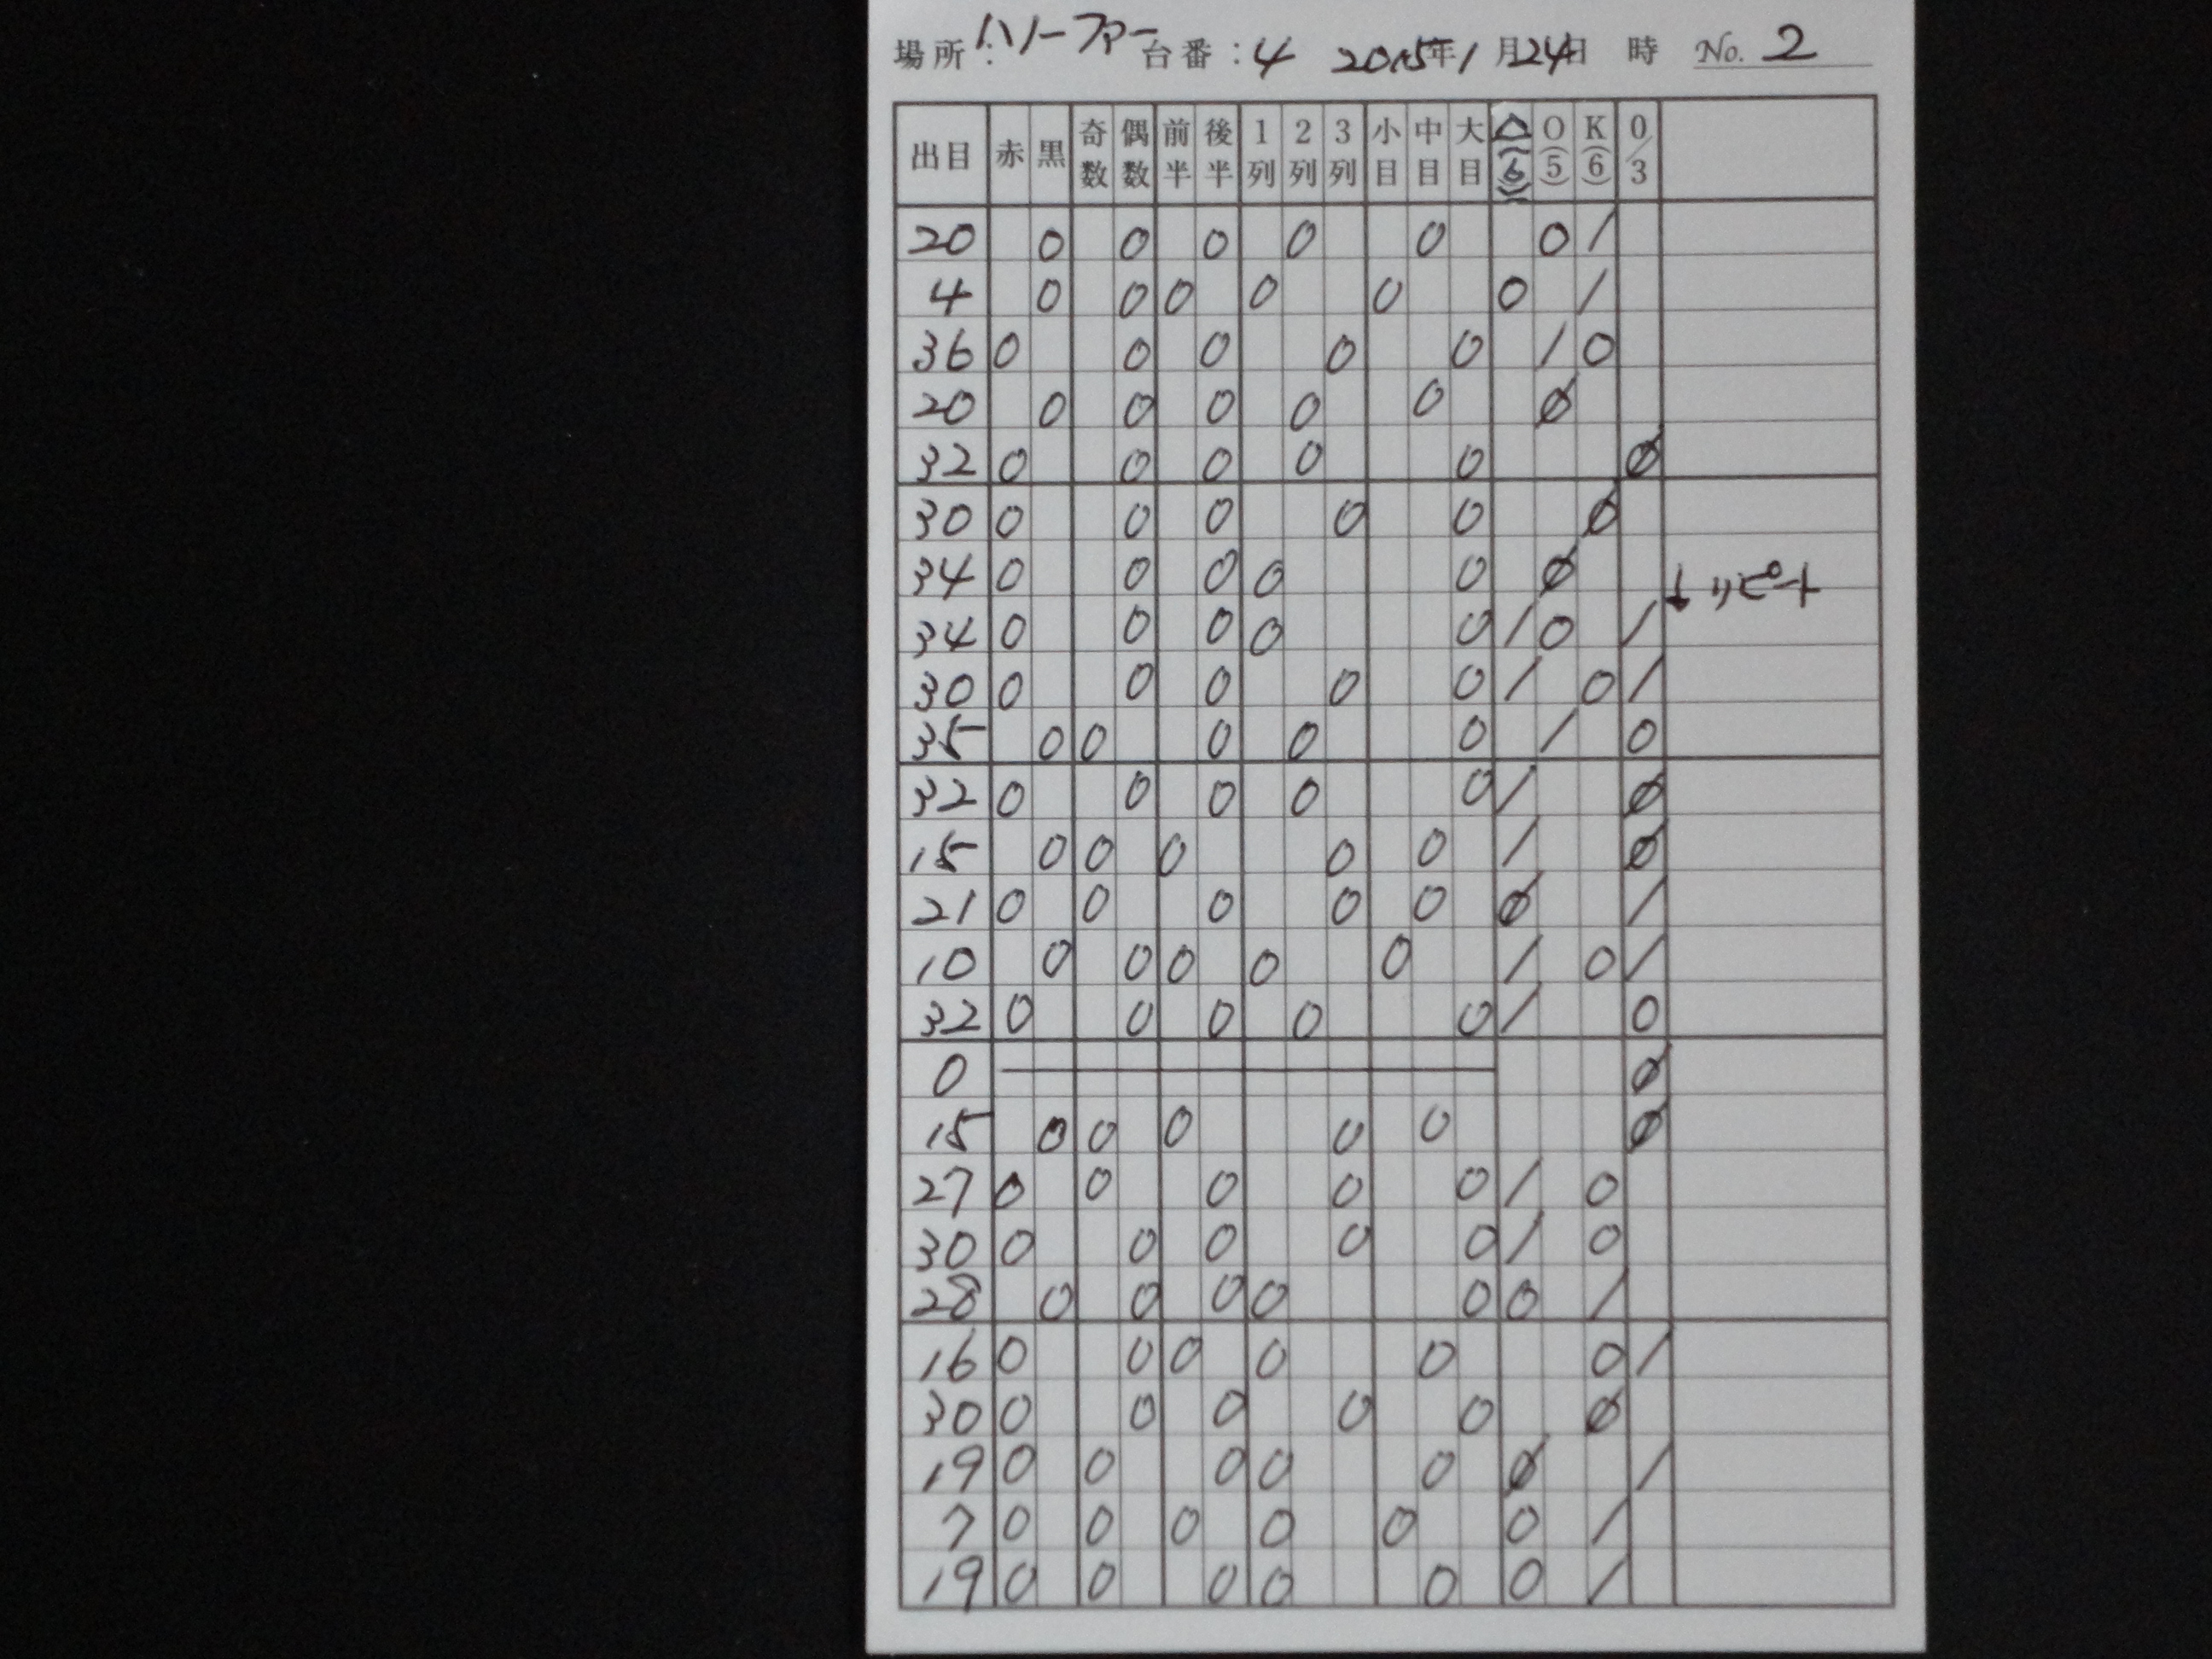 場所:ハリーファー 台番:4 2015年1月24日 時 No. 2
出目 赤 黒 奇数 偶数 前半 後半 1列 2列 3列 小目 中目 大目 △(6) O(5) K(6) 0/3
20 0 0 0 0 0 0 /
4 0 0 0 0 0 0 /
36 0 0 0 0 0 / 0
20 0 0 0 0 0 Ø
32 0 0 0 0 0 Ø
30 0 0 0 0 0 Ø
34 0 0 0 0 0 Ø
↓リピート
34 0 0 0 0 0 / 0 /
30 0 0 0 0 0 / 0 /
35 0 0 0 0 0 / 0
32 0 0 0 0 0 / Ø
15 0 0 0 0 0 / Ø
21 0 0 0 0 0 Ø /
10 0 0 0 0 0 / 0 /
32 0 0 0 0 0 / 0
0 Ø
15 0 0 0 0 0 Ø
27 0 0 0 0 0 / 0
30 0 0 0 0 0 / 0
28 0 0 0 0 0 0 /
16 0 0 0 0 0 0 /
30 0 0 0 0 0 Ø
19 0 0 0 0 0 Ø /
7 0 0 0 0 0 0 /
19 0 0 0 0 0 0 /